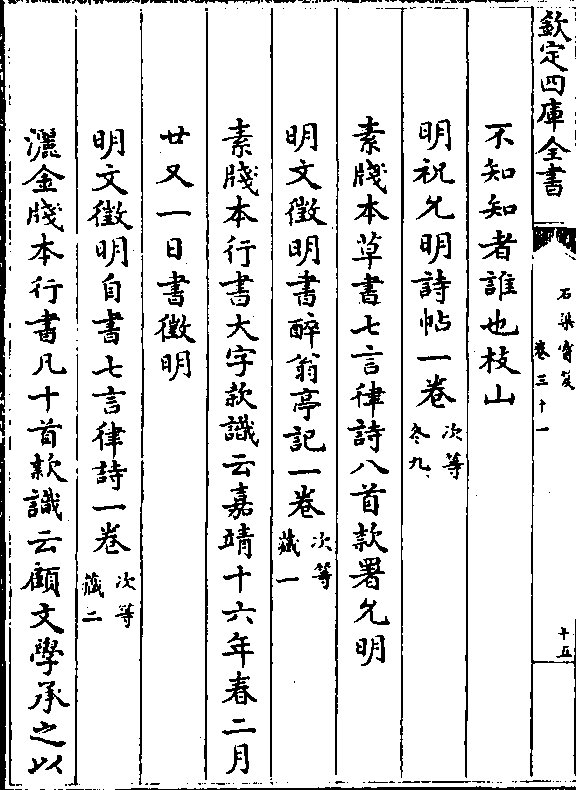 欽定四庫全書
石渠寶笈
卷三十一
十五
不知知者誰也枝山
明祝允明詩帖一卷 次等冬九
素牋本草書七言律詩八首款署允明
明文徵明書醉翁亭記一卷 次等藏一
素牋本行書大字款識云嘉靖十六年春二月
廿又一日書徵明
明文徵明自書七言律詩一卷 次等藏二
灑金牋本行書凡十首款識云顧文學承之以